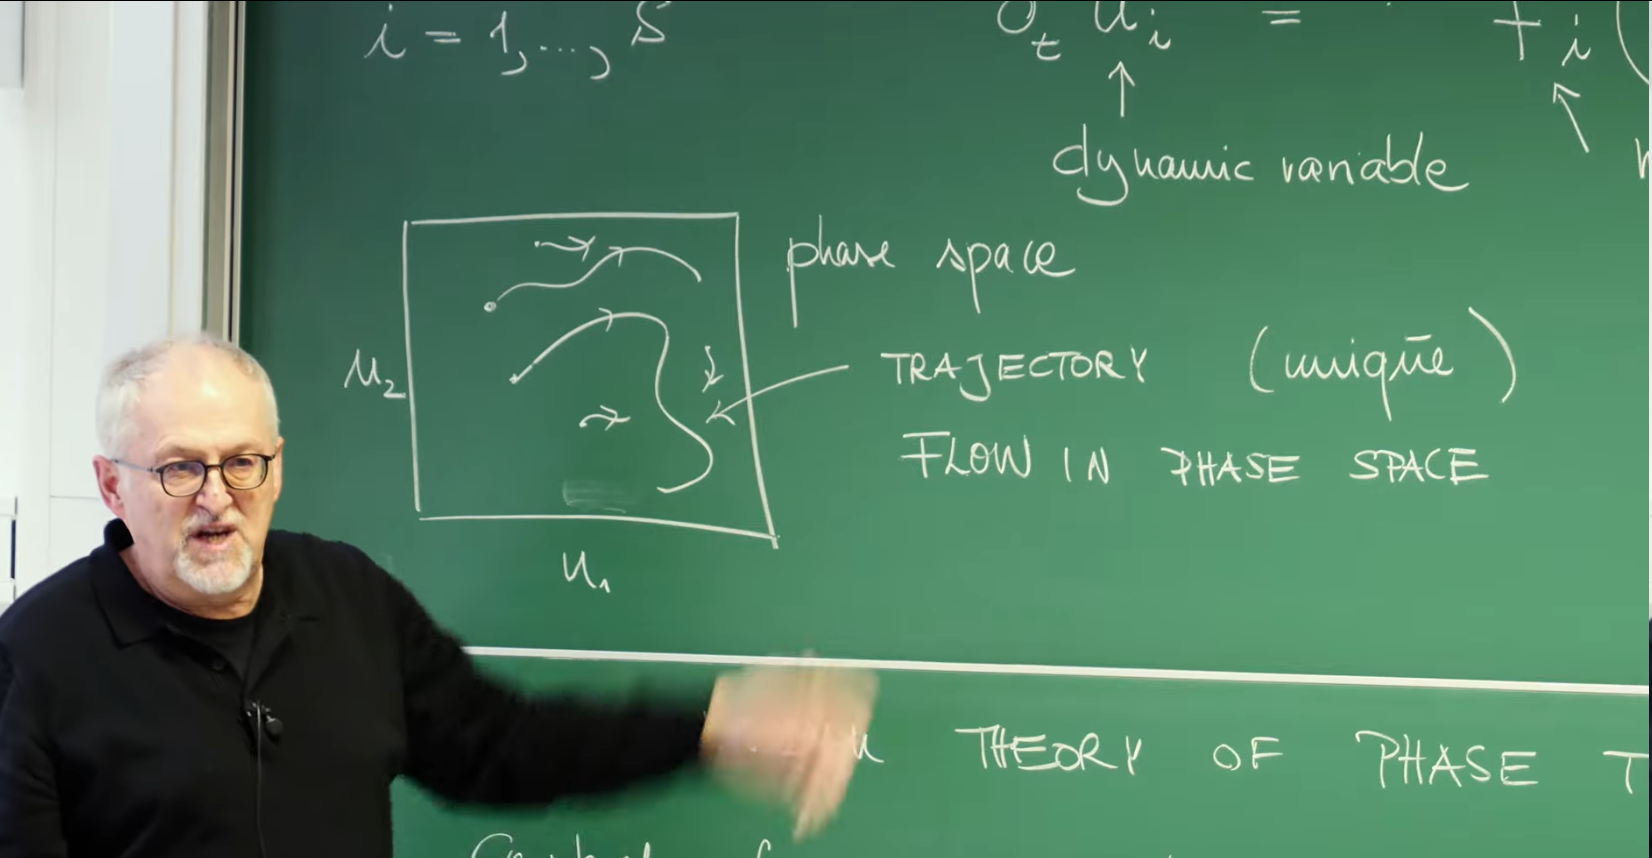 i = 1, ..., S
∂_t u_i = f_i (
dynamic variable
phase space
u_2
TRAJECTORY (unique)
FLOW IN PHASE SPACE
u_1
THEORY OF PHASE T